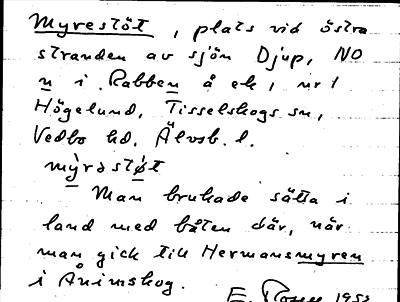 Myrestöt, plats vid östra
stranden av sjön Djup, NO
n i Rabben å ek, nr 1
Högelund, Tisselskogs sn,
Vedbo hd, Älvsb. l.
Man brukade sätta i
land med båten där, när
man gick till Hermansmyren
i Ånimskog.
E. 1953